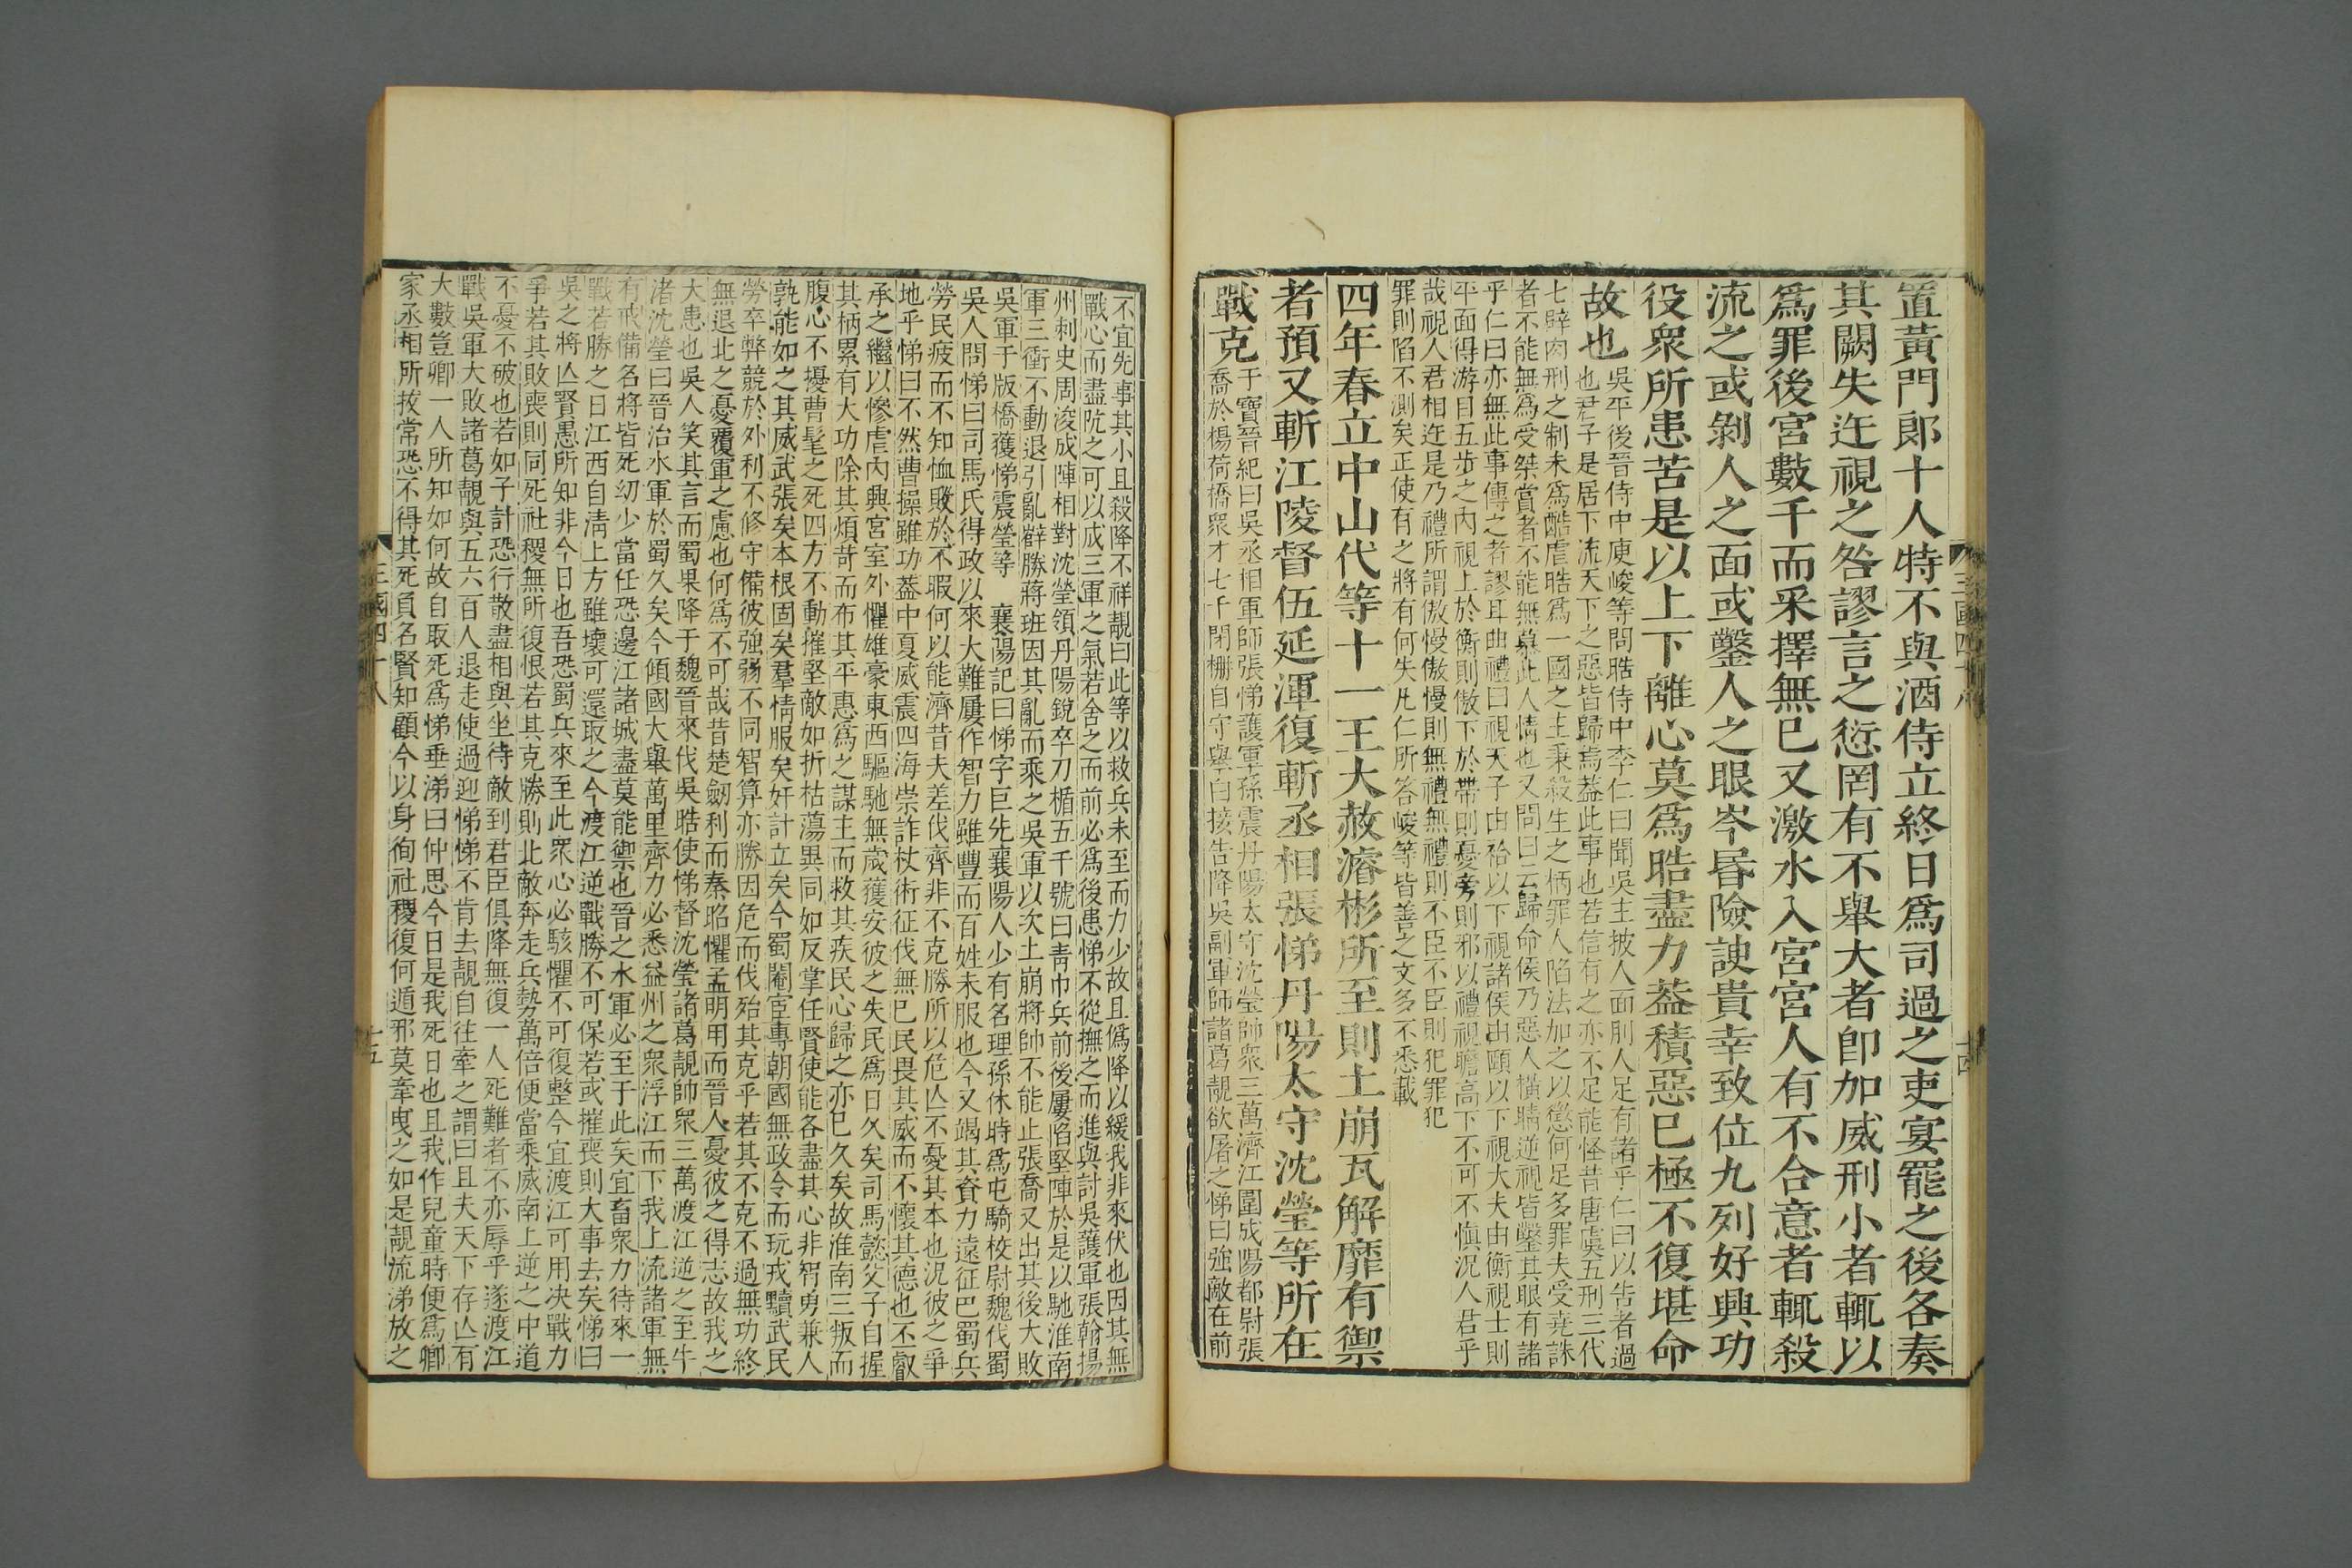 置黃門郎十人特不與酒侍立終日爲司過之吏宴罷之後各奏
其闕失迕視之咎謬言之愆罔有不舉大者卽加威刑小者輒以
爲罪後宮數千而采擇無已又激水入宮宮人有不合意者輒殺
流之或剝人之面或鑿人之眼岑昬險諛貴幸致位九列好興功
役衆所患苦是以上下離心莫爲晧盡力葢積惡已極不復堪命
故也
吳平後晉侍中庾峻等問晧侍中李仁曰聞吳主披人面刖人足有諸乎仁曰以吿者過
也君子是居下流天下之惡皆歸焉葢此事也若信有之亦不足能怪昔唐虞五刑三代
七辟肉刑之制未爲酷虐晧爲一國之主秉殺生之柄罪人陷法加之以懲何足多罪夫受堯誅
者不能無爲受桀賞者不能無慕此人情也又問曰云歸命侯乃惡人橫睛逆視皆鑿其眼有諸
乎仁曰亦無此事傳之者謬耳曲禮曰視天子由袷以下視諸侯由頤以下視大夫由衡視士則
平面得游目五步之內視上於衡則傲下於帶則憂旁則邪以禮視瞻高下不可不愼況人君乎
哉視人君相迕是乃禮所謂傲慢傲慢則無禮無禮則不臣不臣則犯罪犯
罪則陷不測矣正使有之將有何失凡仁所答峻等皆善之文多不悉載
四年春立中山代等十一王大赦濬彬所至則土崩瓦解靡有禦
者預又斬江陵督伍延渾復斬丞相張悌丹陽太守沈瑩等所在
戰克
干寶晉紀曰吳丞相軍師張悌護軍孫震丹陽太守沈瑩帥衆三萬濟江圍成陽都尉張
喬於楊荷橋衆才七千閉柵自守舉白接告降吳副軍師諸葛靚欲屠之悌曰強敵在前
三國四十八
十四
不宜先事其小且殺降不祥靚曰此等以救兵未至而力少故且僞降以緩我非來伏也因其無
戰心而盡阬之可以成三軍之氣若舍之而前必爲後患悌不從撫之而進與討吳護軍張翰揚
州刺史周浚成陣相對沈瑩領丹陽銳卒刀楯五千號曰靑巾兵前後屢陷堅陣於是以馳淮南
軍三衝不動退引亂薛勝蔣班因其亂而乘之吳軍以次土崩將帥不能止張喬又出其後大敗
吳軍于版橋獲悌震瑩等　襄陽記曰悌字巨先襄陽人少有名理孫休時爲屯騎校尉魏伐蜀
吳人問悌曰司馬氏得政以來大難屢作智力雖豐而百姓未服也今又竭其資力遠征巴蜀兵
勞民疲而不知恤敗於不暇何以能濟昔夫差伐齊非不克勝所以危亾不憂其本也況彼之爭
地乎悌曰不然曹操雖功葢中夏威震四海崇詐杖術征伐無已民畏其威而不懷其德也丕叡
承之繼以慘虐內興宮室外懼雄豪東西驅馳無歲獲安彼之失民爲日久矣司馬懿父子自握
其柄累有大功除其煩苛而布其平惠爲之謀主而救其疾民心歸之亦已久矣故淮南三叛而
腹心不擾曹髦之死四方不動摧堅敵如折枯蕩異同如反掌任賢使能各盡其心非智勇兼人
孰能如之其威武張矣本根固矣羣情服矣奸計立矣今蜀閹宦專朝國無政令而玩戎黷武民
勞卒弊競於外利不修守備彼強弱不同智算亦勝因危而伐殆其克乎若其不克不過無功終
無退北之憂覆軍之慮也何爲不可哉昔楚劒利而秦昭懼孟明用而晉人憂彼之得志故我之
大患也吳人笑其言而蜀果降于魏晉來伐吳晧使悌督沈瑩諸葛靚帥衆三萬渡江逆之至牛
渚沈瑩曰晉治水軍於蜀久矣今傾國大舉萬里齊力必悉益州之衆浮江而下我上流諸軍無
有戒備名將皆死幼少當任恐邊江諸城盡莫能禦也晉之水軍必至于此矣宜畜衆力待來一
戰若勝之日江西自淸上方雖壞可還取之今渡江逆戰勝不可保若或摧喪則大事去矣悌曰
吳之將亾賢愚所知非今日也吾恐蜀兵來至此衆心必駭懼不可復整今宜渡江可用決戰力
爭若其敗喪則同死社稷無所復恨若其克勝則北敵奔走兵勢萬倍便當乘威南上逆之中道
不憂不破也若如子計恐行散盡相與坐待敵到君臣俱降無復一人死難者不亦辱乎遂渡江
戰吳軍大敗諸葛靚與五六百人退走使過迎悌悌不肯去靚自往牽之謂曰且夫天下存亾有
大數豈卿一人所知如何故自取死爲悌垂涕曰仲思今日是我死日也且我作兒童時便爲卿
家丞相所拔常恐不得其死負名賢知顧今以身徇社稷復何遁邪莫牽曳之如是靚流涕放之
三國四十八
十五